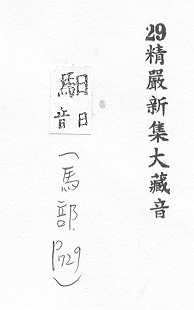 29精嚴新集大藏音
馹
音日
(馬部P729)